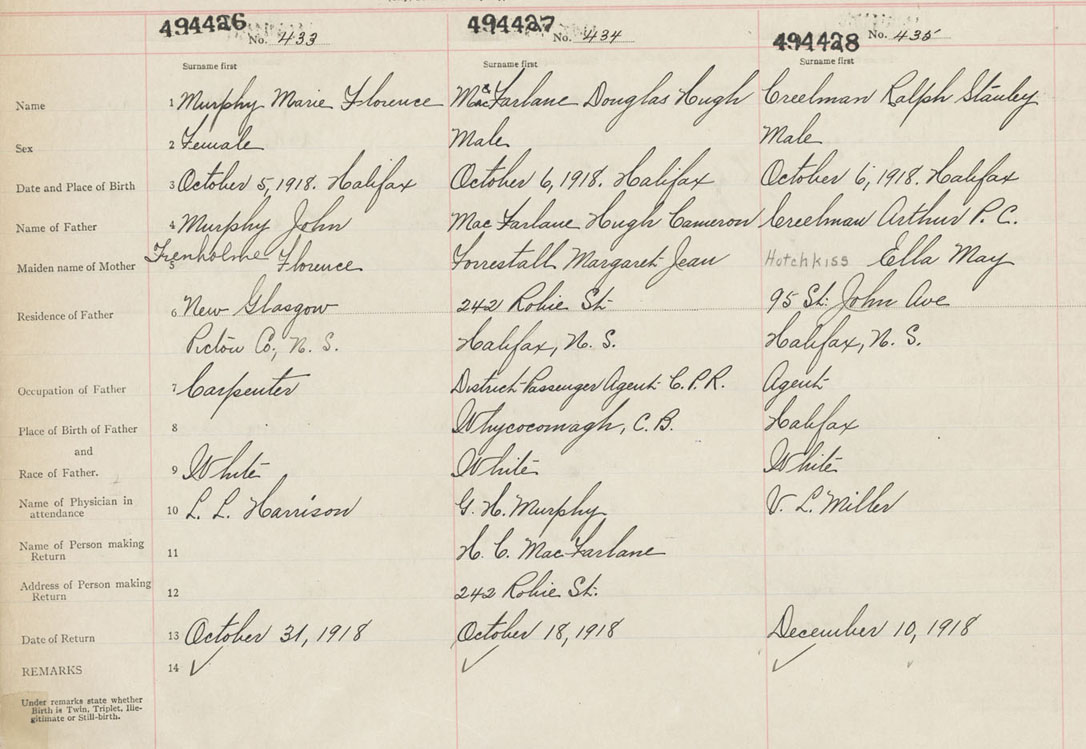 494426 No. 433 494427 No. 434 494428 No. 435
Surname first Surname first Surname first
Name 1 Murphy Marie Florence MacFarlane Douglas Hugh Creelman Ralph Stanley
Sex 2 Female Male Male
Date and Place of Birth 3 October 5, 1918. Halifax October 6, 1918. Halifax October 6, 1918. Halifax
Name of Father 4 Murphy John MacFarlane Hugh Cameron Creelman Arthur P. C.
Maiden name of Mother 5 Trenholme Florence Forrestall Margaret Jean Hotchkiss Ella May
Residence of Father 6 New Glasgow 242 Robie St. 95 St. John Ave
Pictou Co., N. S. Halifax, N. S. Halifax, N. S.
Occupation of Father 7 Carpenter District Passenger Agent C. P. R. Agent
Place of Birth of Father 8 Whycocomagh, C. B. Halifax
and
Race of Father. 9 White White White
Name of Physician in
attendance 10 L. L. Harrison G. H. Murphy V. L. Miller
Name of Person making
Return 11 H. C. MacFarlane
Address of Person making
Return 12 242 Robie St.
Date of Return 13 October 31, 1918 October 18, 1918 December 10, 1918
REMARKS 14 ✓ ✓ ✓
Under remarks state whether
Birth is Twin, Triplet, Ille-
gitimate or Still-birth.